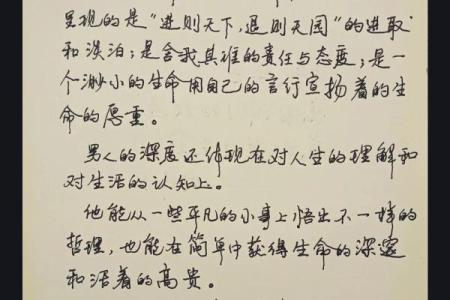 呈现的是“进则天下，退则田园”的进取
和淡泊；是舍我其谁的责任与态度；是一
个渺小的生命用自己的言行宣扬着的生
命的厚重。
男人的深度还体现在对人生的理解和
对生活的认知上。
他能从一些平凡的小事上悟出不一样的
哲理，也能在简单中获得生命的深邃
和活着的高贵。